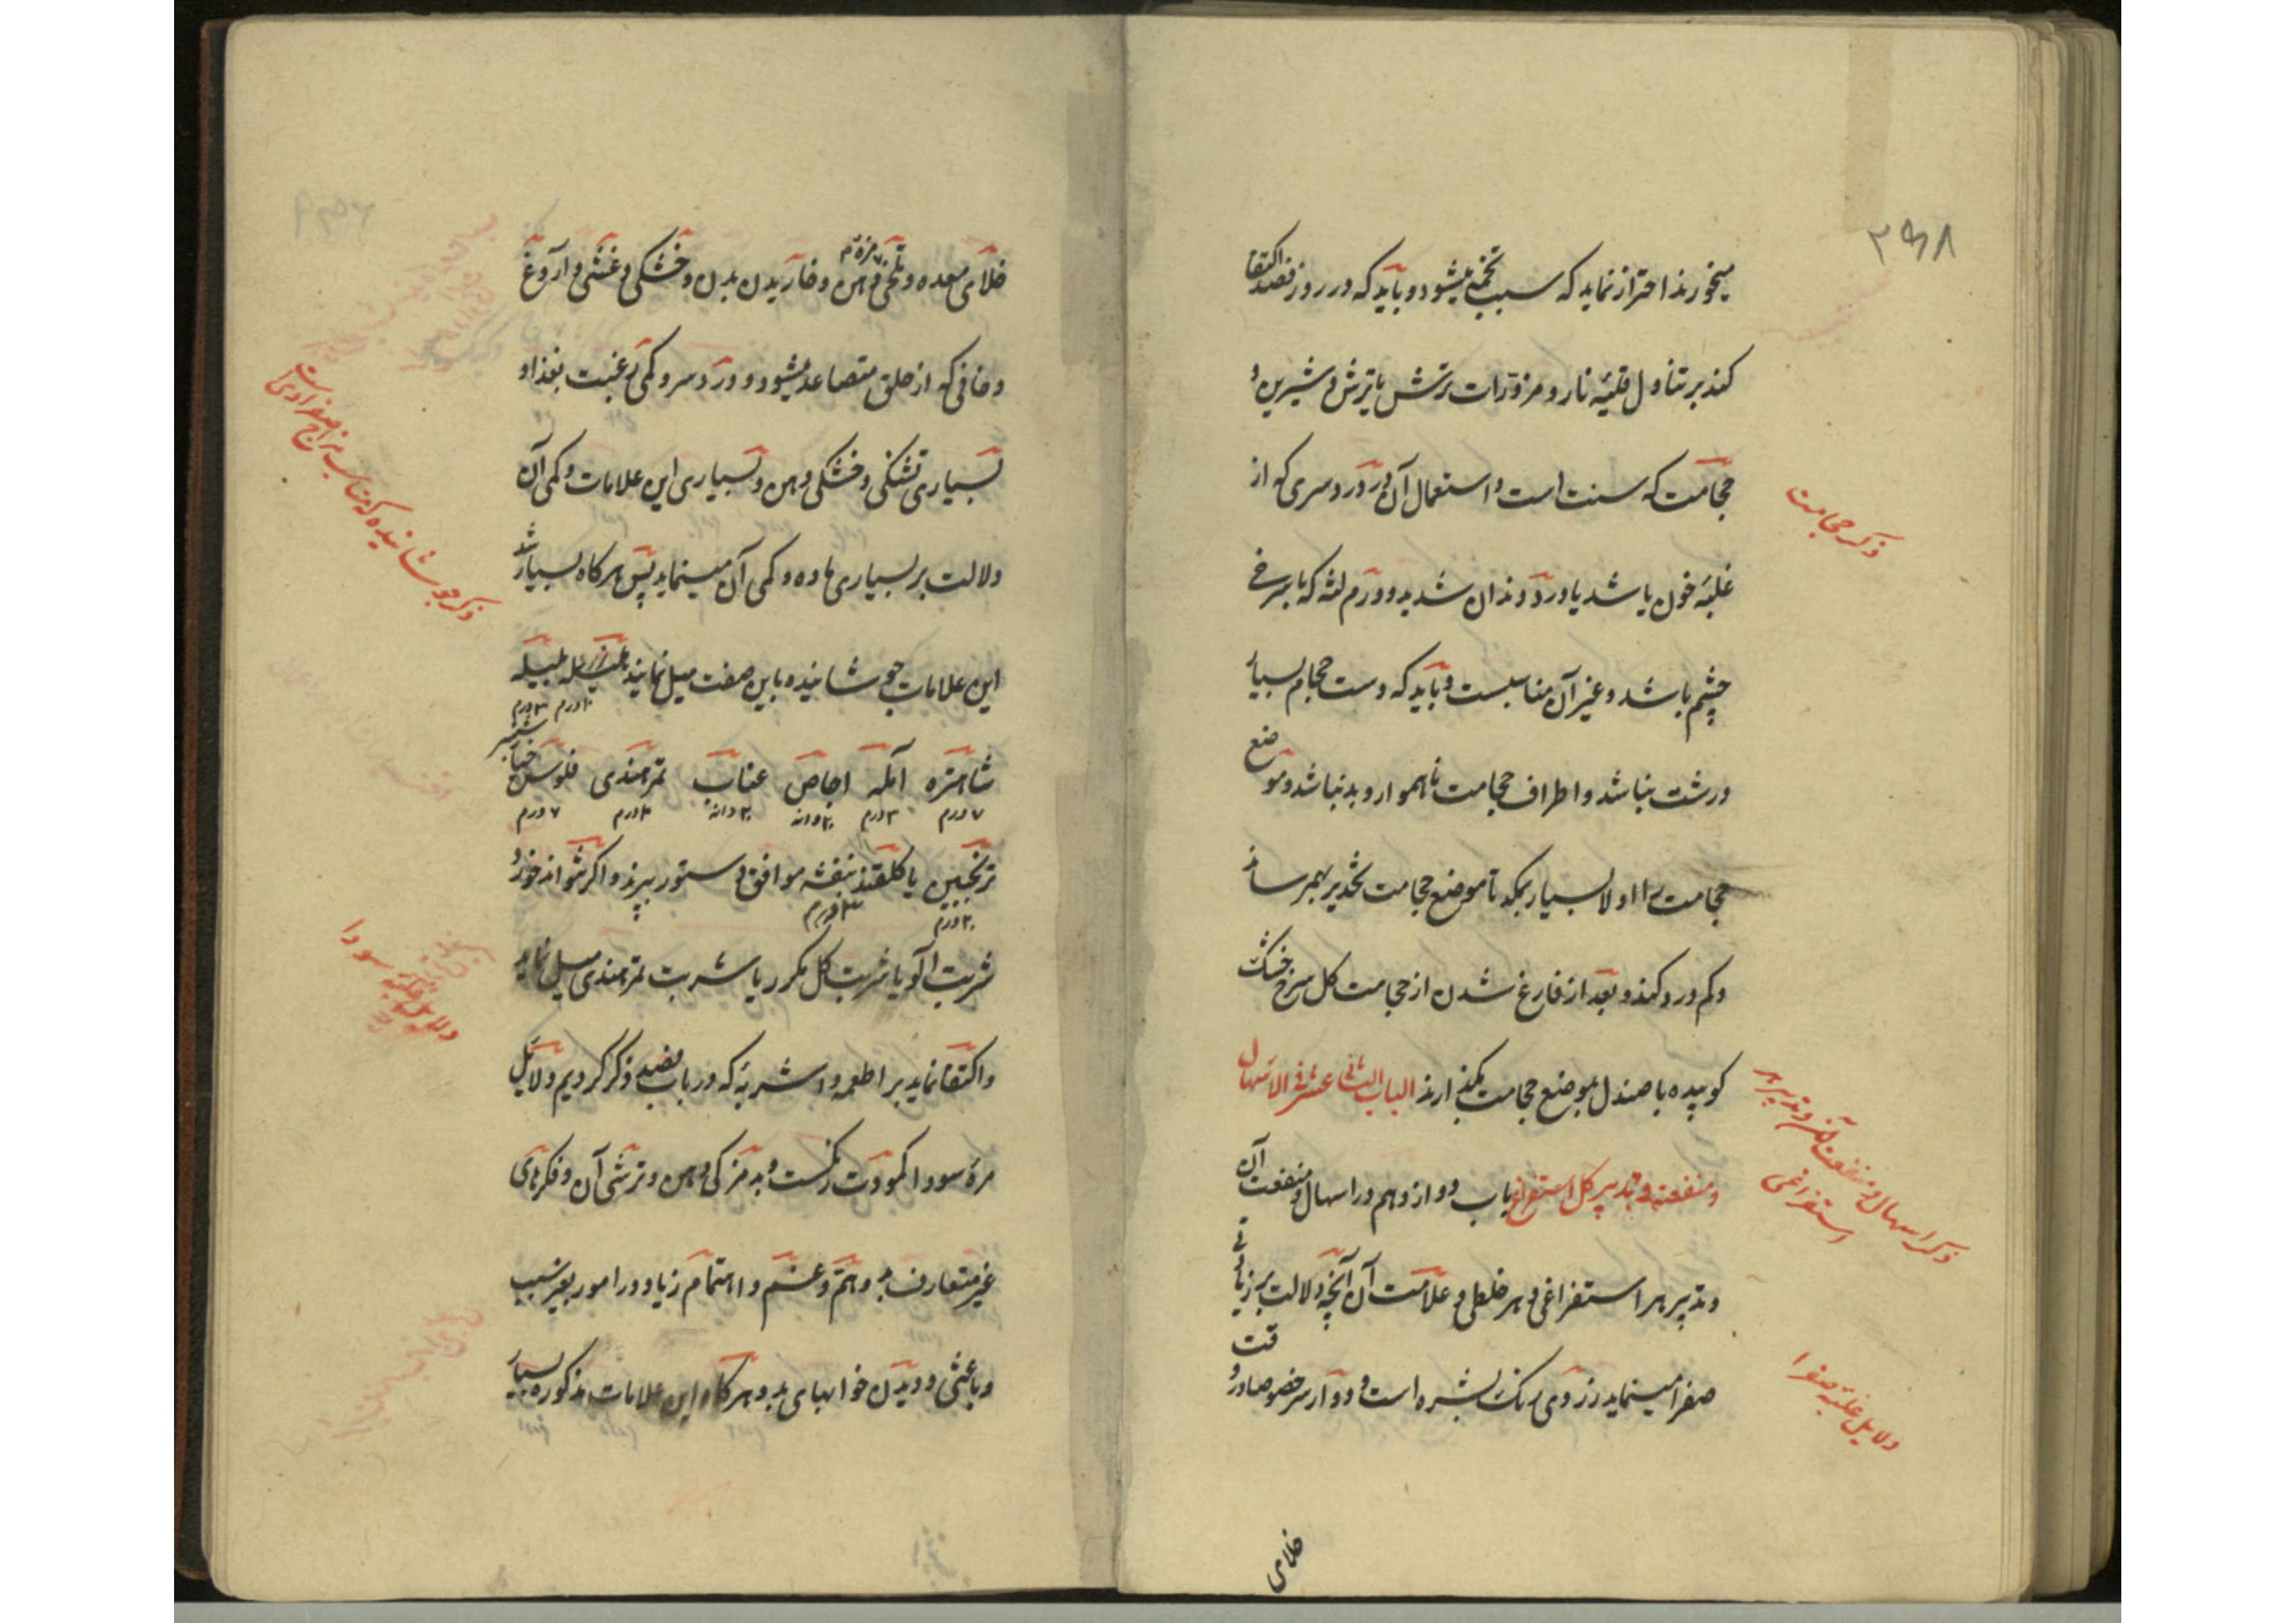 ۲۹۸
میخورند احتراز نماید که سبب تخمه میشود و باید که در روز فصد اکتفا
کند بر تناول قلیهٔ نار و مزورات ترش یا ترش و شیرین و
حجامت که سنت است و استعمال آن در درد سری که از
غلبهٔ خون باشد یا درد دندان شدید و ورم لثه که با سرخی
چشم باشد و غیر آن مناسبست و باید که دست حجام بسیار
درشت نباشد و اطراف حجامت ناهموار و بد نباشد و موضع
حجامت را اولا بسیار بمکد تا موضع حجامت تخدیر بهم رساند
و کم درد کند و بعد از فارغ شدن از حجامت کل سرخ خشک
کوبیده با صندل بموضع حجامت بگذارند الباب الثانی عشر فی الاسهال
و منفعته و تدبیر کل استفراغ باب دوازدهم در اسهال و منفعت آن
و تدبیر هر استفراغی و هر خلطی و علامت آن آنچه دلالت بر زیادتی
صفرا مینماید زردی رنک بشره است و دوار سر خصوصا در وقت
خلای
ذکر حجامت
ذکر اسهال و منفعت آن و تدبیر هر
استفراغی
دلایل غلبهٔ صفرا
خلای معده و تلخی مزهٔ دهن و خاریدن بدن و خشکی و غشی و آروغ
دخانی که از حلق متصاعد میشود و درد سر و کمی رغبت بغذا و
بسیاری تشنکی و خشکی دهن و بسیاری این علامات و کمی آن
دلالت بر بسیاری ماده و کمی آن مینماید پس هرکاه بسیار شد
این علامات جوشانیده باین صفت میل نمایند هلیله زرد بلیله
۱۰درم ۳درم
شاهتره آمله اجاص عناب تمرهندی فلوس خیارشنبر
۷درم ۳درم ۲۰دانه ۲۰دانه ۳۰درم ۷درم
ترنجبین یا کلقند بنفشه موافق دستور بپزند و اکر نتواند خورد
۲۰درم ۳۰درم
شربت آلو یا شربت کل مکرر یا شربت تمرهندی میل نماید
و اکتفا نماید بر اطعمه و اشربهٔ که در باب فصد ذکر کردیم و دلایل
مرهٔ سودا کمودت رنکست و بد مزکی دهن و ترشی آن و فکرهای
غیر متعارف بد و هم و غم و اهتمام زیاد در امور بغیر سبب
و باعثی و دیدن خوابهای بد و هرکاه این علامات مذکوره بسیار
ذکر جوشانیده که مناسب مزاج صفراویست
دلایل غلبهٔ سودا